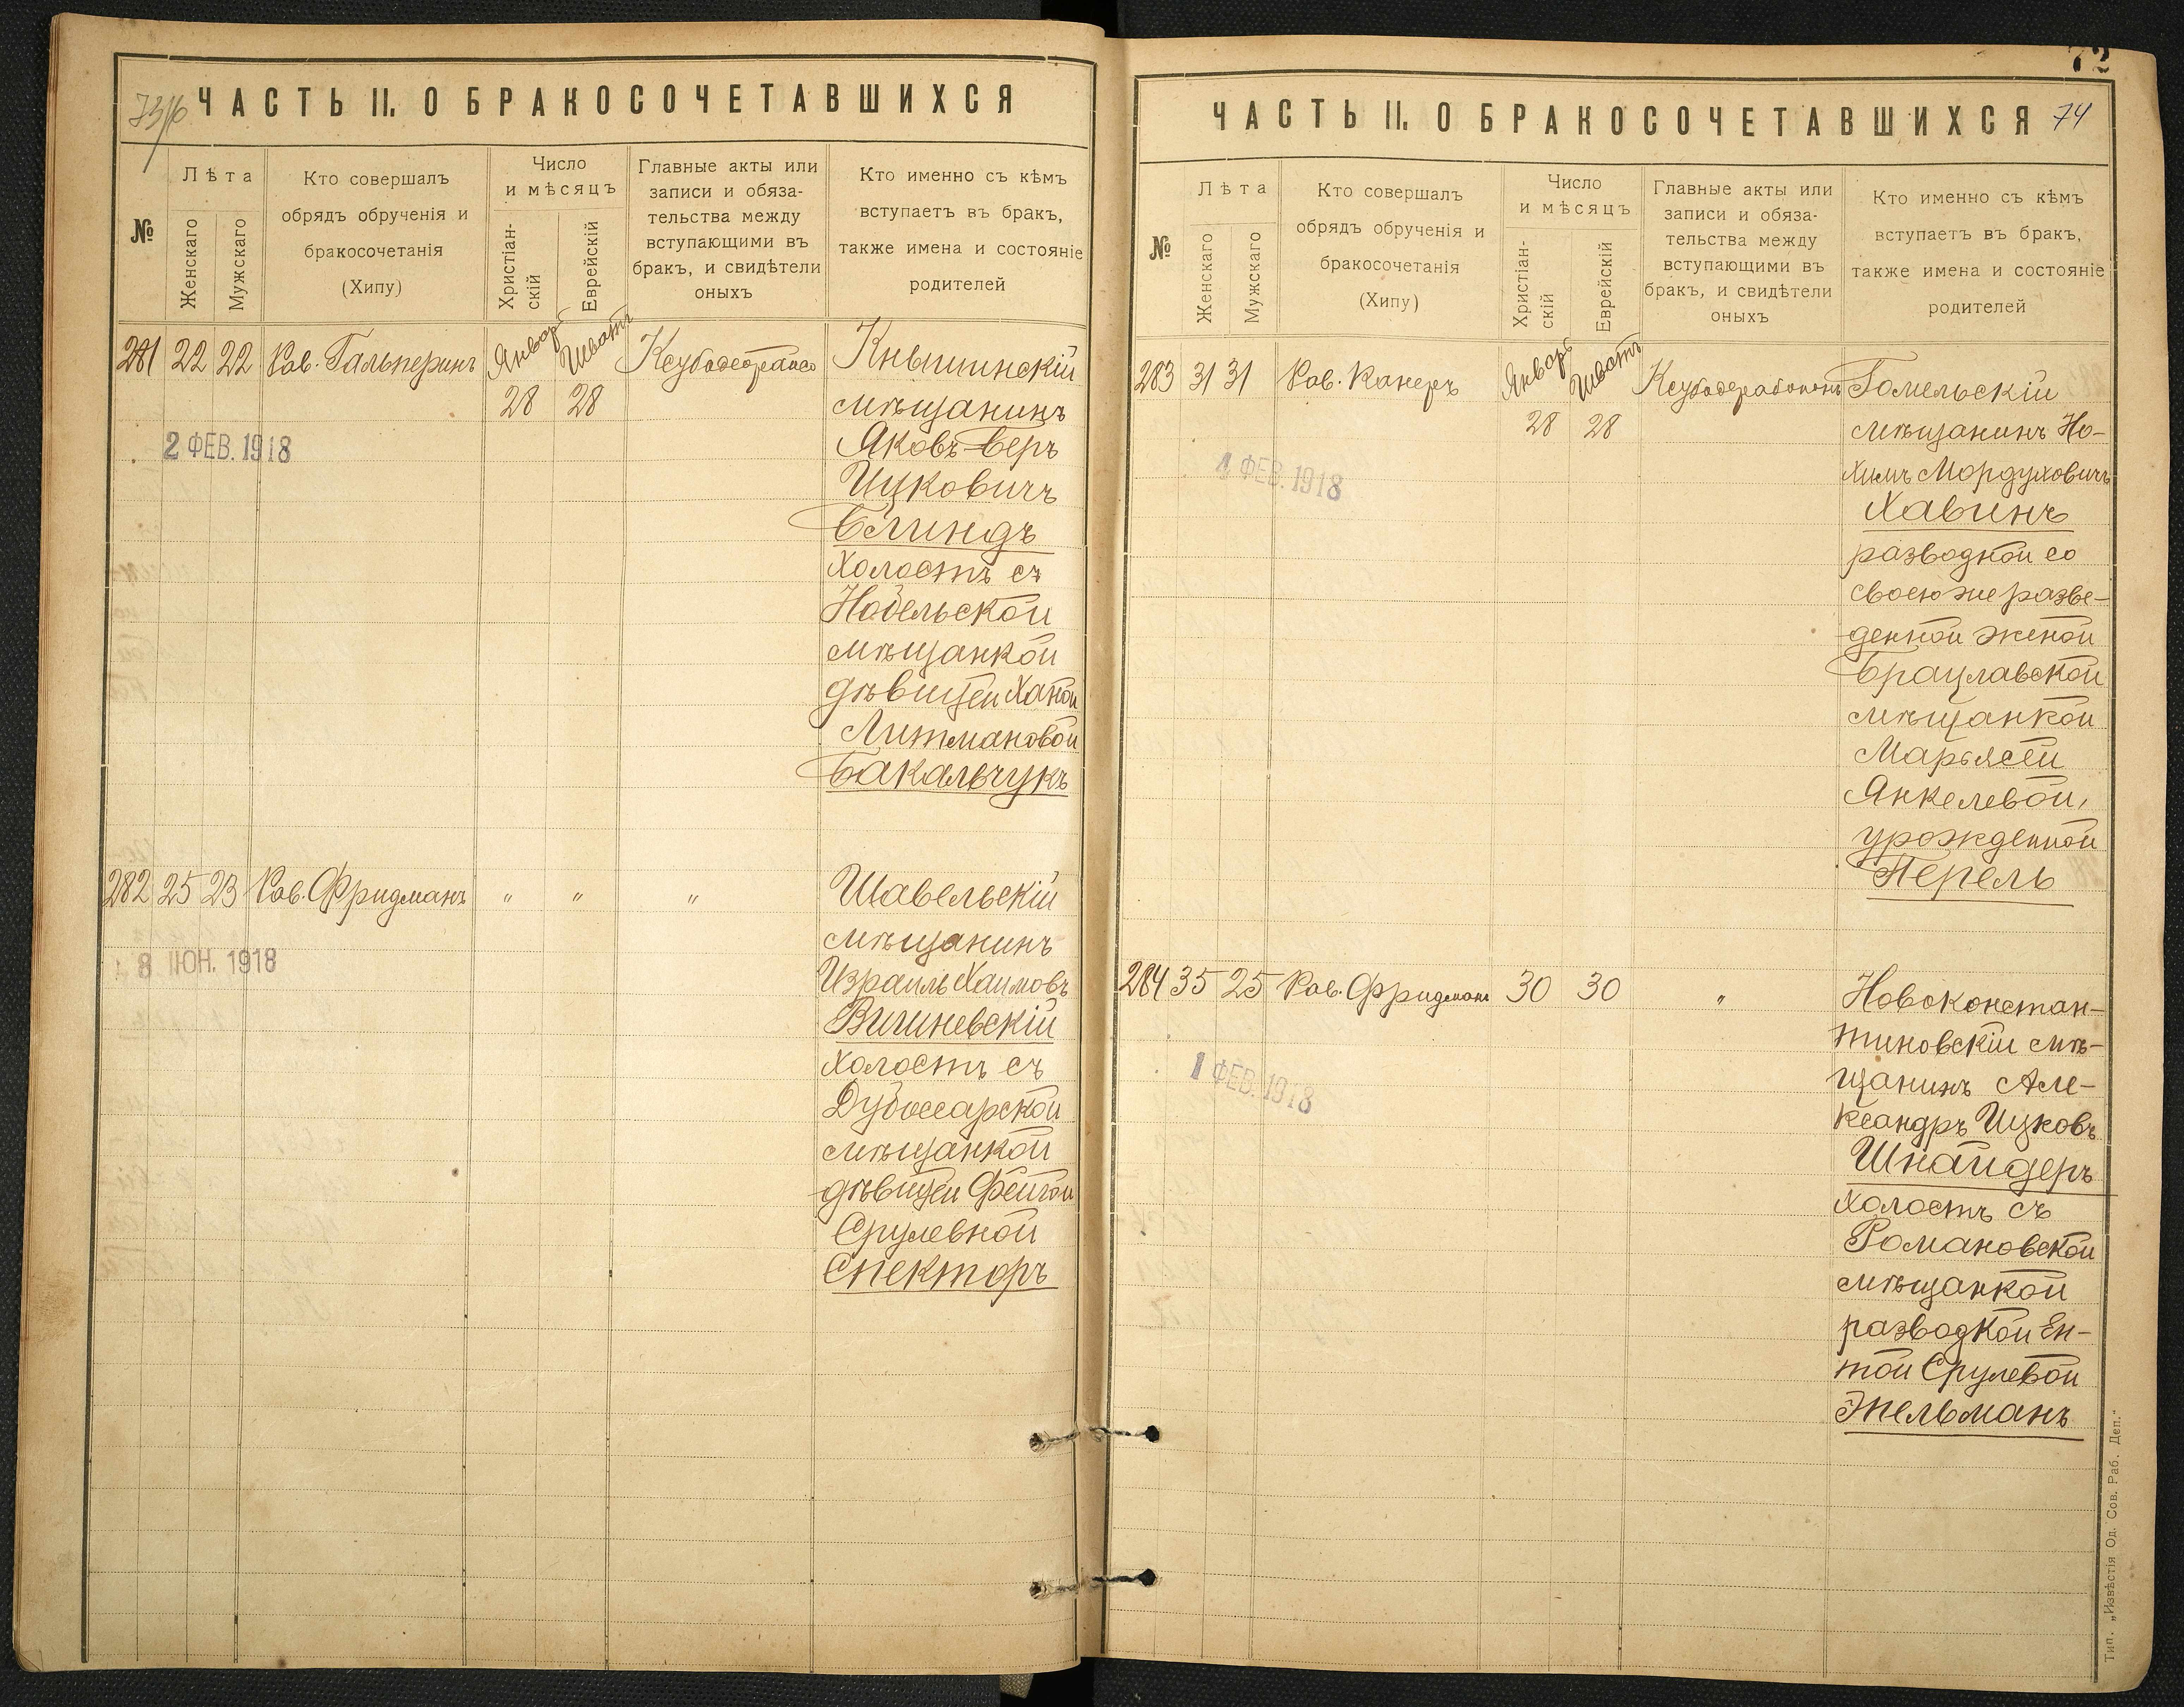 73/16
ЧАСТЬ II. О БРАКОСОЧЕТАВШИХСЯ
№
Лѣта
Женскаго
Мужскаго
Кто совершалъ
обрядъ обрученія и
бракосочетанія
(Хипу)
Число
и мѣсяцъ
Христіан-
скій
Еврейскій
Главные акты или
записи и обяза-
тельства между
вступающими въ
бракъ, и свидѣтели
оныхъ
Кто именно съ кѣмъ
вступаетъ въ бракъ,
также имена и состояніе
родителей
281 22 22 Рав. Гальперинъ Январь 28 Шватъ 28
Кнышинскій
мѣщанинъ
Яковъ-Беръ
Ицковичъ
Блиндъ
холостъ съ
Нобельской
мѣщанкой
дѣвицей Ханой
Литмановой
Бакальчукъ
2 ФЕВ. 1918
282 25 23 Рав. Фридманъ " " "
Шавельскій
мѣщанинъ
Израиль Хаимовъ
Вишневскій
холостъ съ
Дубоссарской
мѣщанкой
дѣвицей Фейгой
Срулевной
Спекторъ
8 ІЮН. 1918
72
ЧАСТЬ II. О БРАКОСОЧЕТАВШИХСЯ 74
№
Лѣта
Женскаго
Мужскаго
Кто совершалъ
обрядъ обрученія и
бракосочетанія
(Хипу)
Число
и мѣсяцъ
Христіан-
скій
Еврейскій
Главные акты или
записи и обяза-
тельства между
вступающими въ
бракъ, и свидѣтели
оныхъ
Кто именно съ кѣмъ
вступаетъ въ бракъ,
также имена и состояніе
родителей
283 31 31 Рав. Канеръ Январь 28 Шватъ 28
Гомельскій
мѣщанинъ Но-
химъ Мордуховичъ
Хавинъ
разводной со
своею же разве-
денной женой
Брацлавской
мѣщанкой
Марьясей
Янкелевой,
урожденной
Перель
1 ФЕВ. 1918
284 35 25 Рав. Фридманъ 30 30 "
Новоконстан-
тиновскій мѣ-
щанинъ Але-
ксандръ Ицковъ
Шнайдеръ
холостъ съ
Романовской
мѣщанкой
разводкой Ен-
той Срулевой
Эпельманъ
1 ФЕВ. 1918
Тип. „Извѣстія Од. Сов. Раб. Деп."